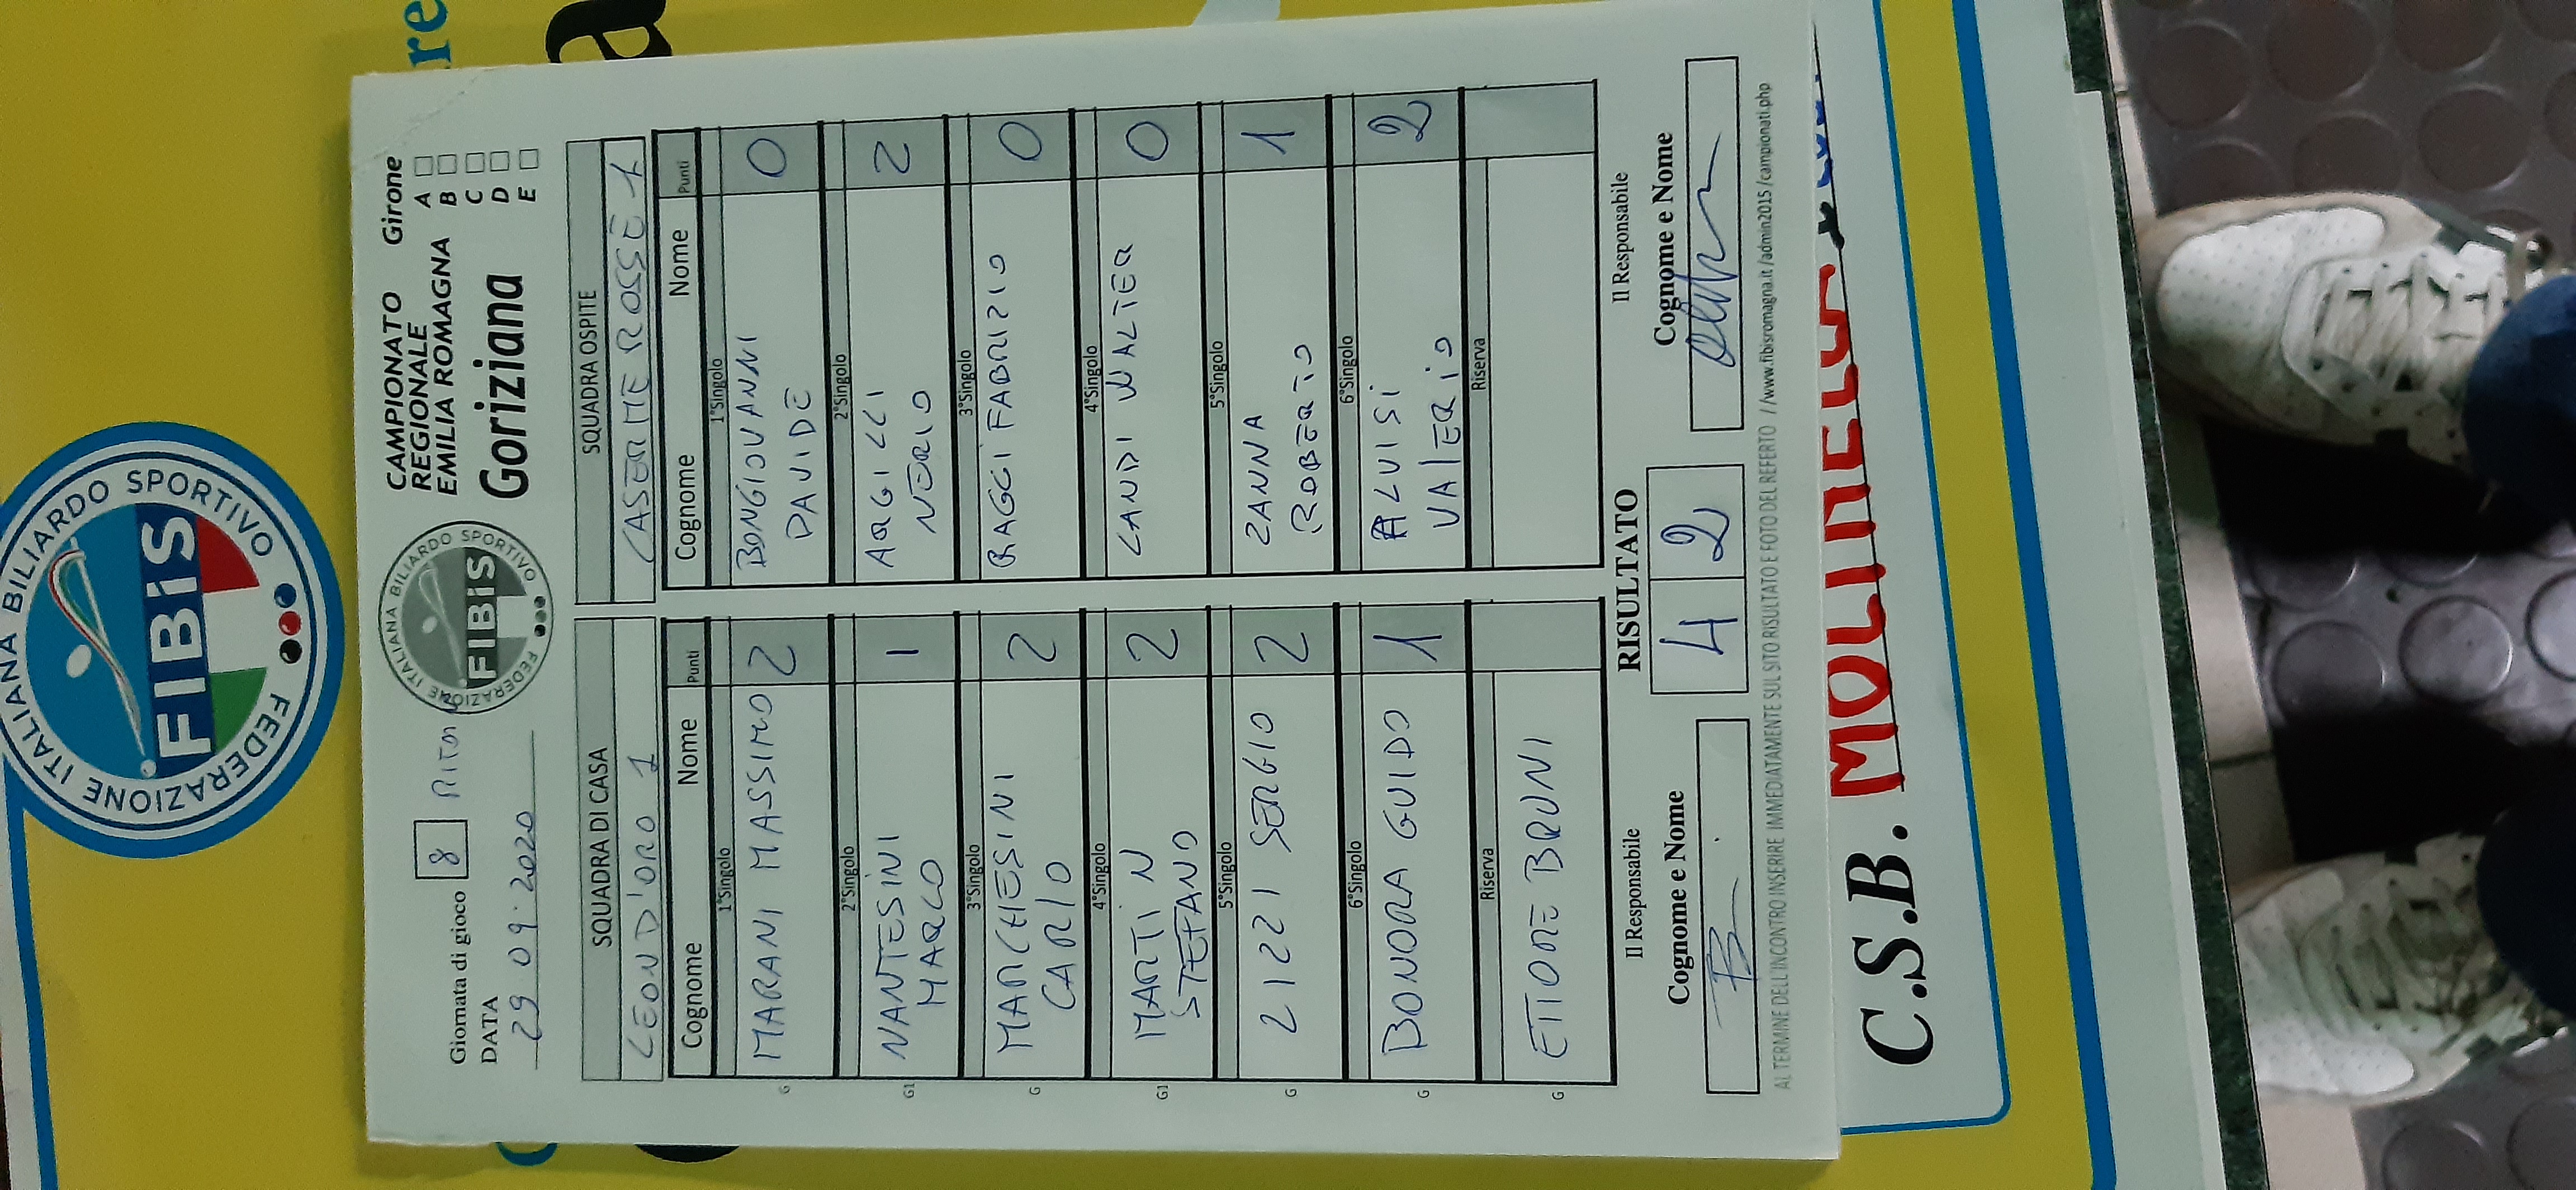 FEDERAZIONE ITALIANA BILIARDO SPORTIVO
FIBiS
re
a
Giornata di gioco 8
DATA 29 09.2020
FEDERAZIONE ITALIANA BILIARDO SPORTIVO
FIBiS
CAMPIONATO
REGIONALE
EMILIA ROMAGNA
Goriziana
Girone
A
B
C
D
E
SQUADRA DI CASA SQUADRA OSPITE
LEON D'ORO 1 CASERME ROSSE 1
Cognome Nome Punti Cognome Nome Punti
1°Singolo 1°Singolo
G MARANI MASSIMO 2 BONGIOVANNI DAVIDE 0
2°Singolo 2°Singolo
G1 NANTESINI MARCO 1 ARGILLI NERIO 2
3°Singolo 3°Singolo
G MARCHESINI CARLO 2 RAGGI FABRIZIO 0
4°Singolo 4°Singolo
G1 MARTIN STEFANO 2 LANDI WALTER 0
5°Singolo 5°Singolo
G LIZZI SERGIO 2 ZANNA ROBERTO 1
6°Singolo 6°Singolo
G BONORA GUIDO 1 ALUISI VALERIO 2
Riserva Riserva
G ETTORE BRUNI
Il Responsabile RISULTATO Il Responsabile
Cognome e Nome 4 2 Cognome e Nome
AL TERMINE DELL'INCONTRO INSERIRE IMMEDIATAMENTE SUL SITO RISULTATO E FOTO DEL REFERTO //www.fibisromagna.it/admin2015/campionati.php
C.S.B. MOLINELLA